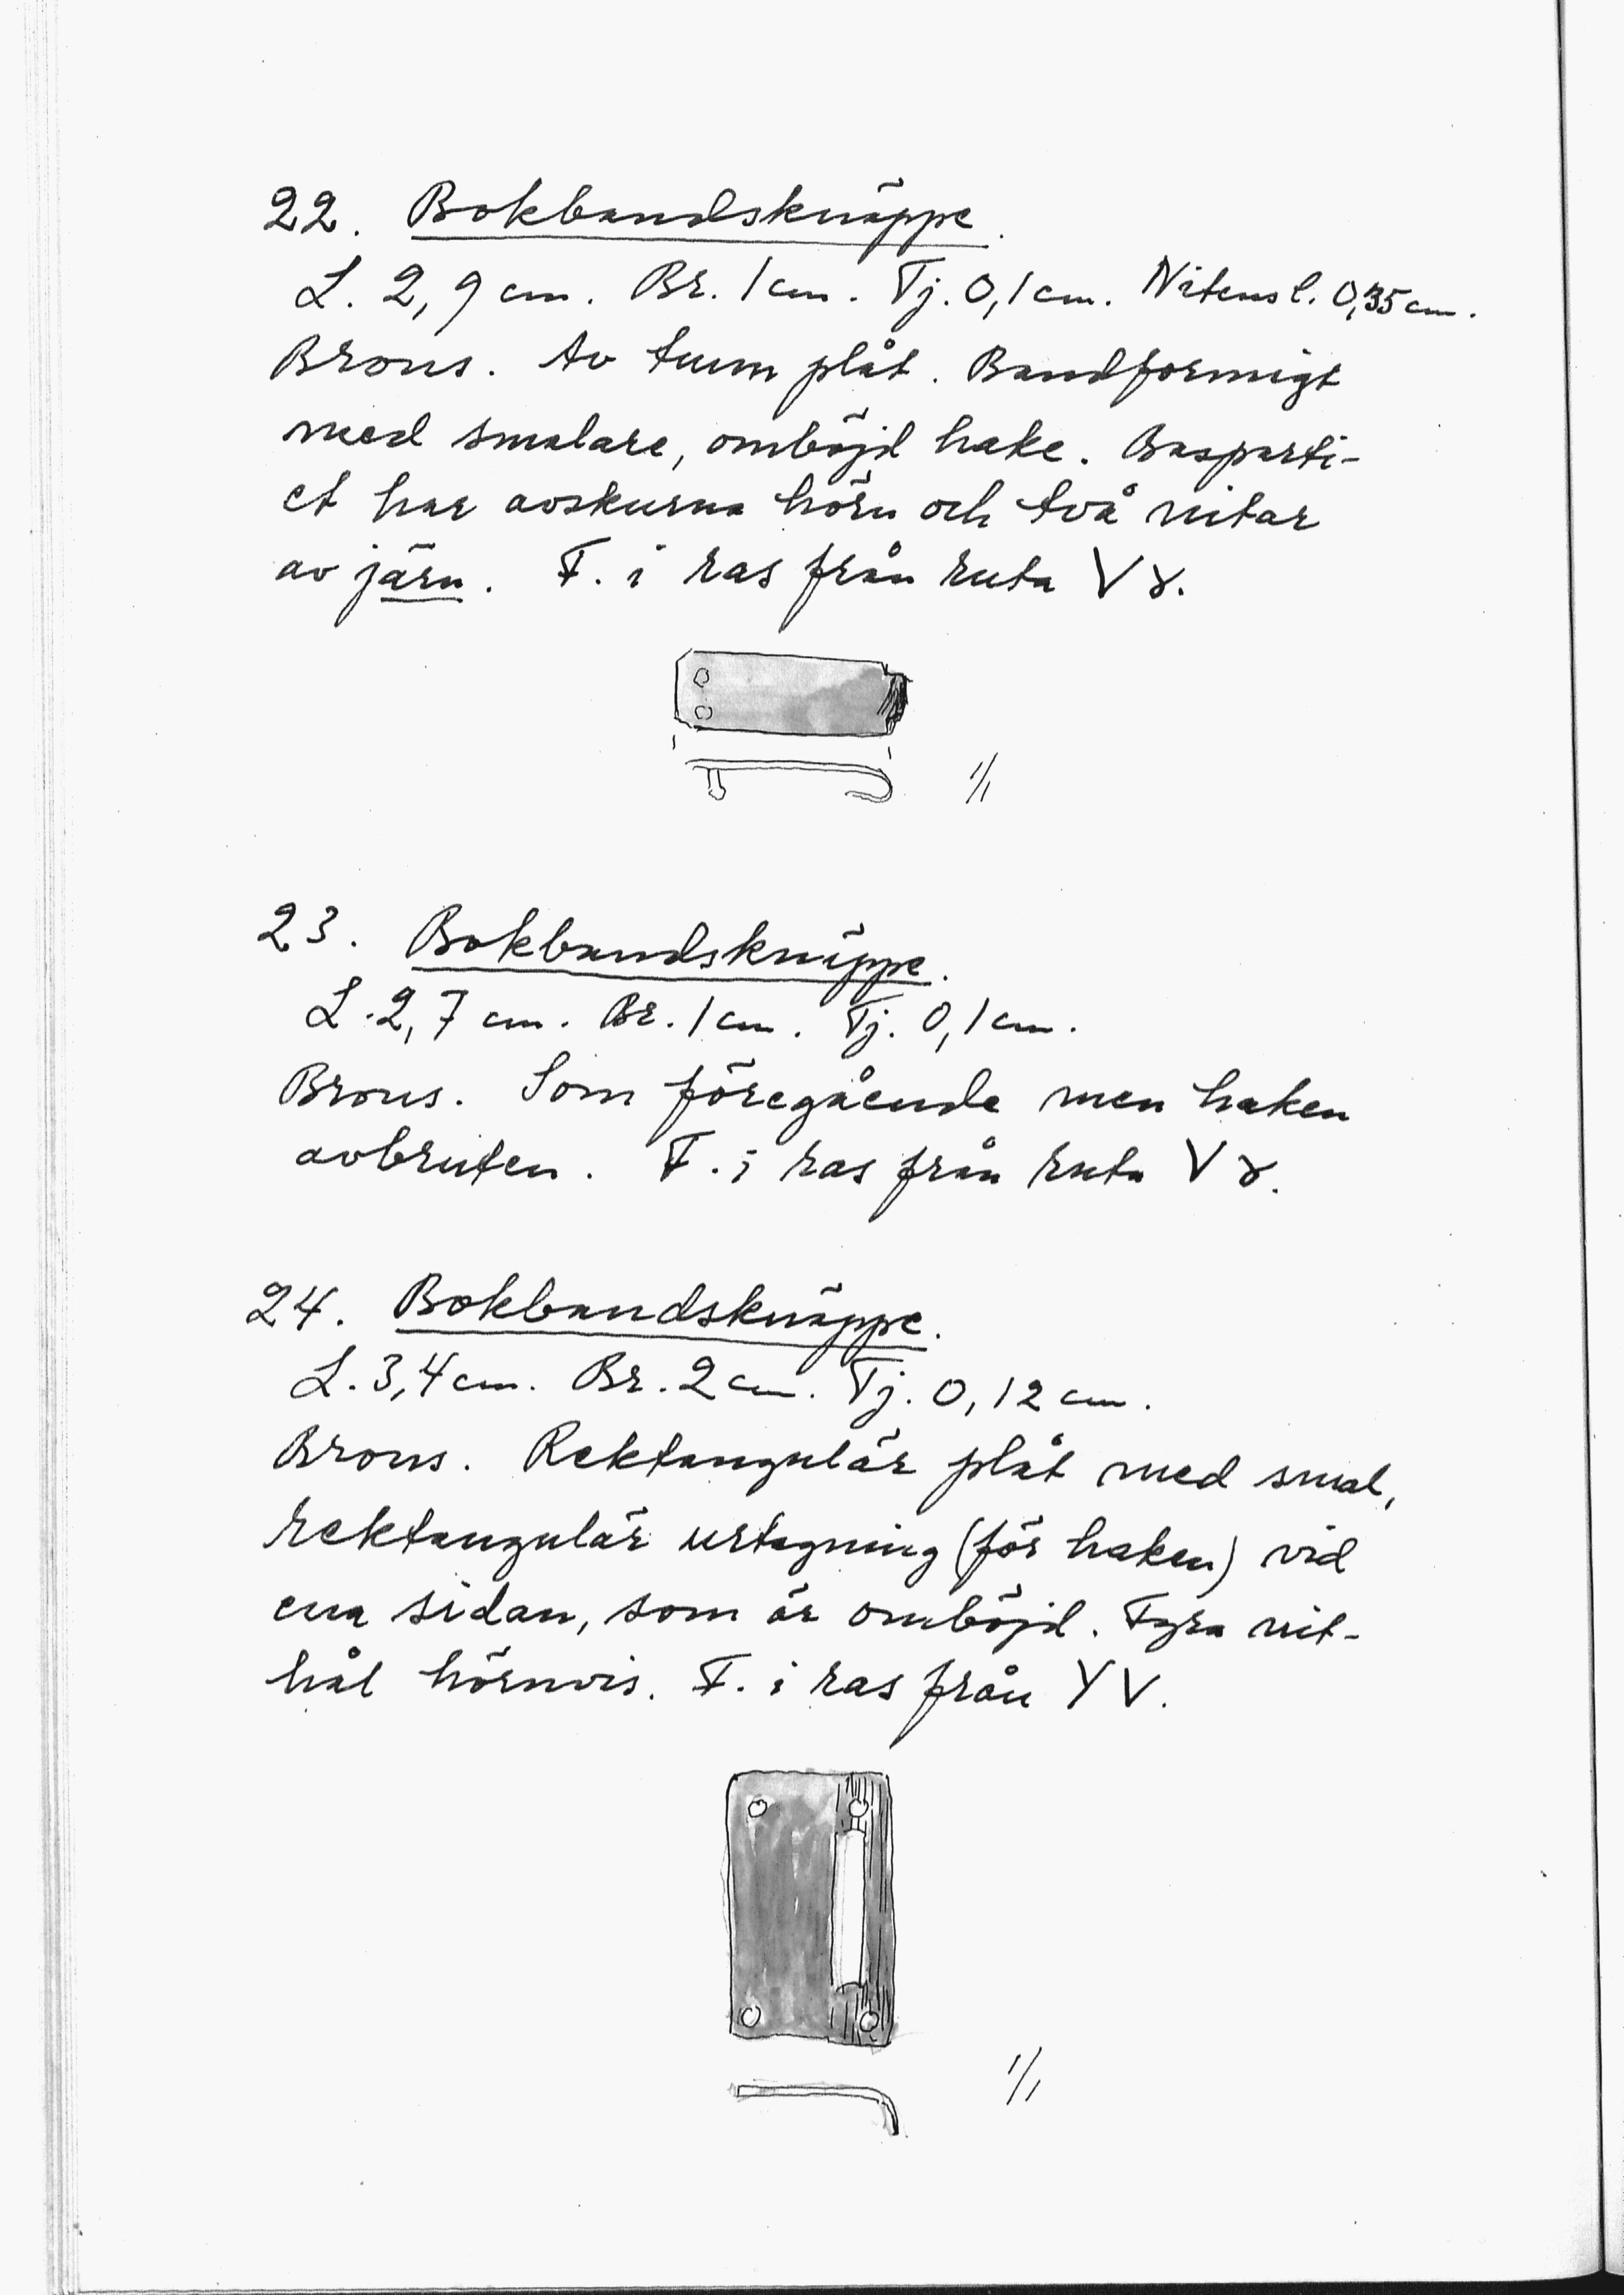 22. Bokbandsknäppe.
L. 2,9 cm. Br. 1 cm. Tj. 0,1 cm. Nitens l. 0,35 cm.
Brons. Av tunn plåt. Bandformigt
med smalare, omböjd hake. Basparti-
et har avskurna hörn och två nitar
av järn. F. i ras från ruta V γ.
1/1
23. Bokbandsknäppe.
L. 2,7 cm. Br. 1 cm. Tj. 0,1 cm.
Brons. Som föregående men haken
avbruten. F. i ras från ruta V γ.
24. Bokbandsknäppe.
L. 3,4 cm. Br. 2 cm. Tj. 0,12 cm.
Brons. Rektangulär plåt med smal,
rektangulär urtagning (för haken) vid
ena sidan, som är omböjd. Fyra nit-
hål hörnvis. F. i ras från Y V.
1/1